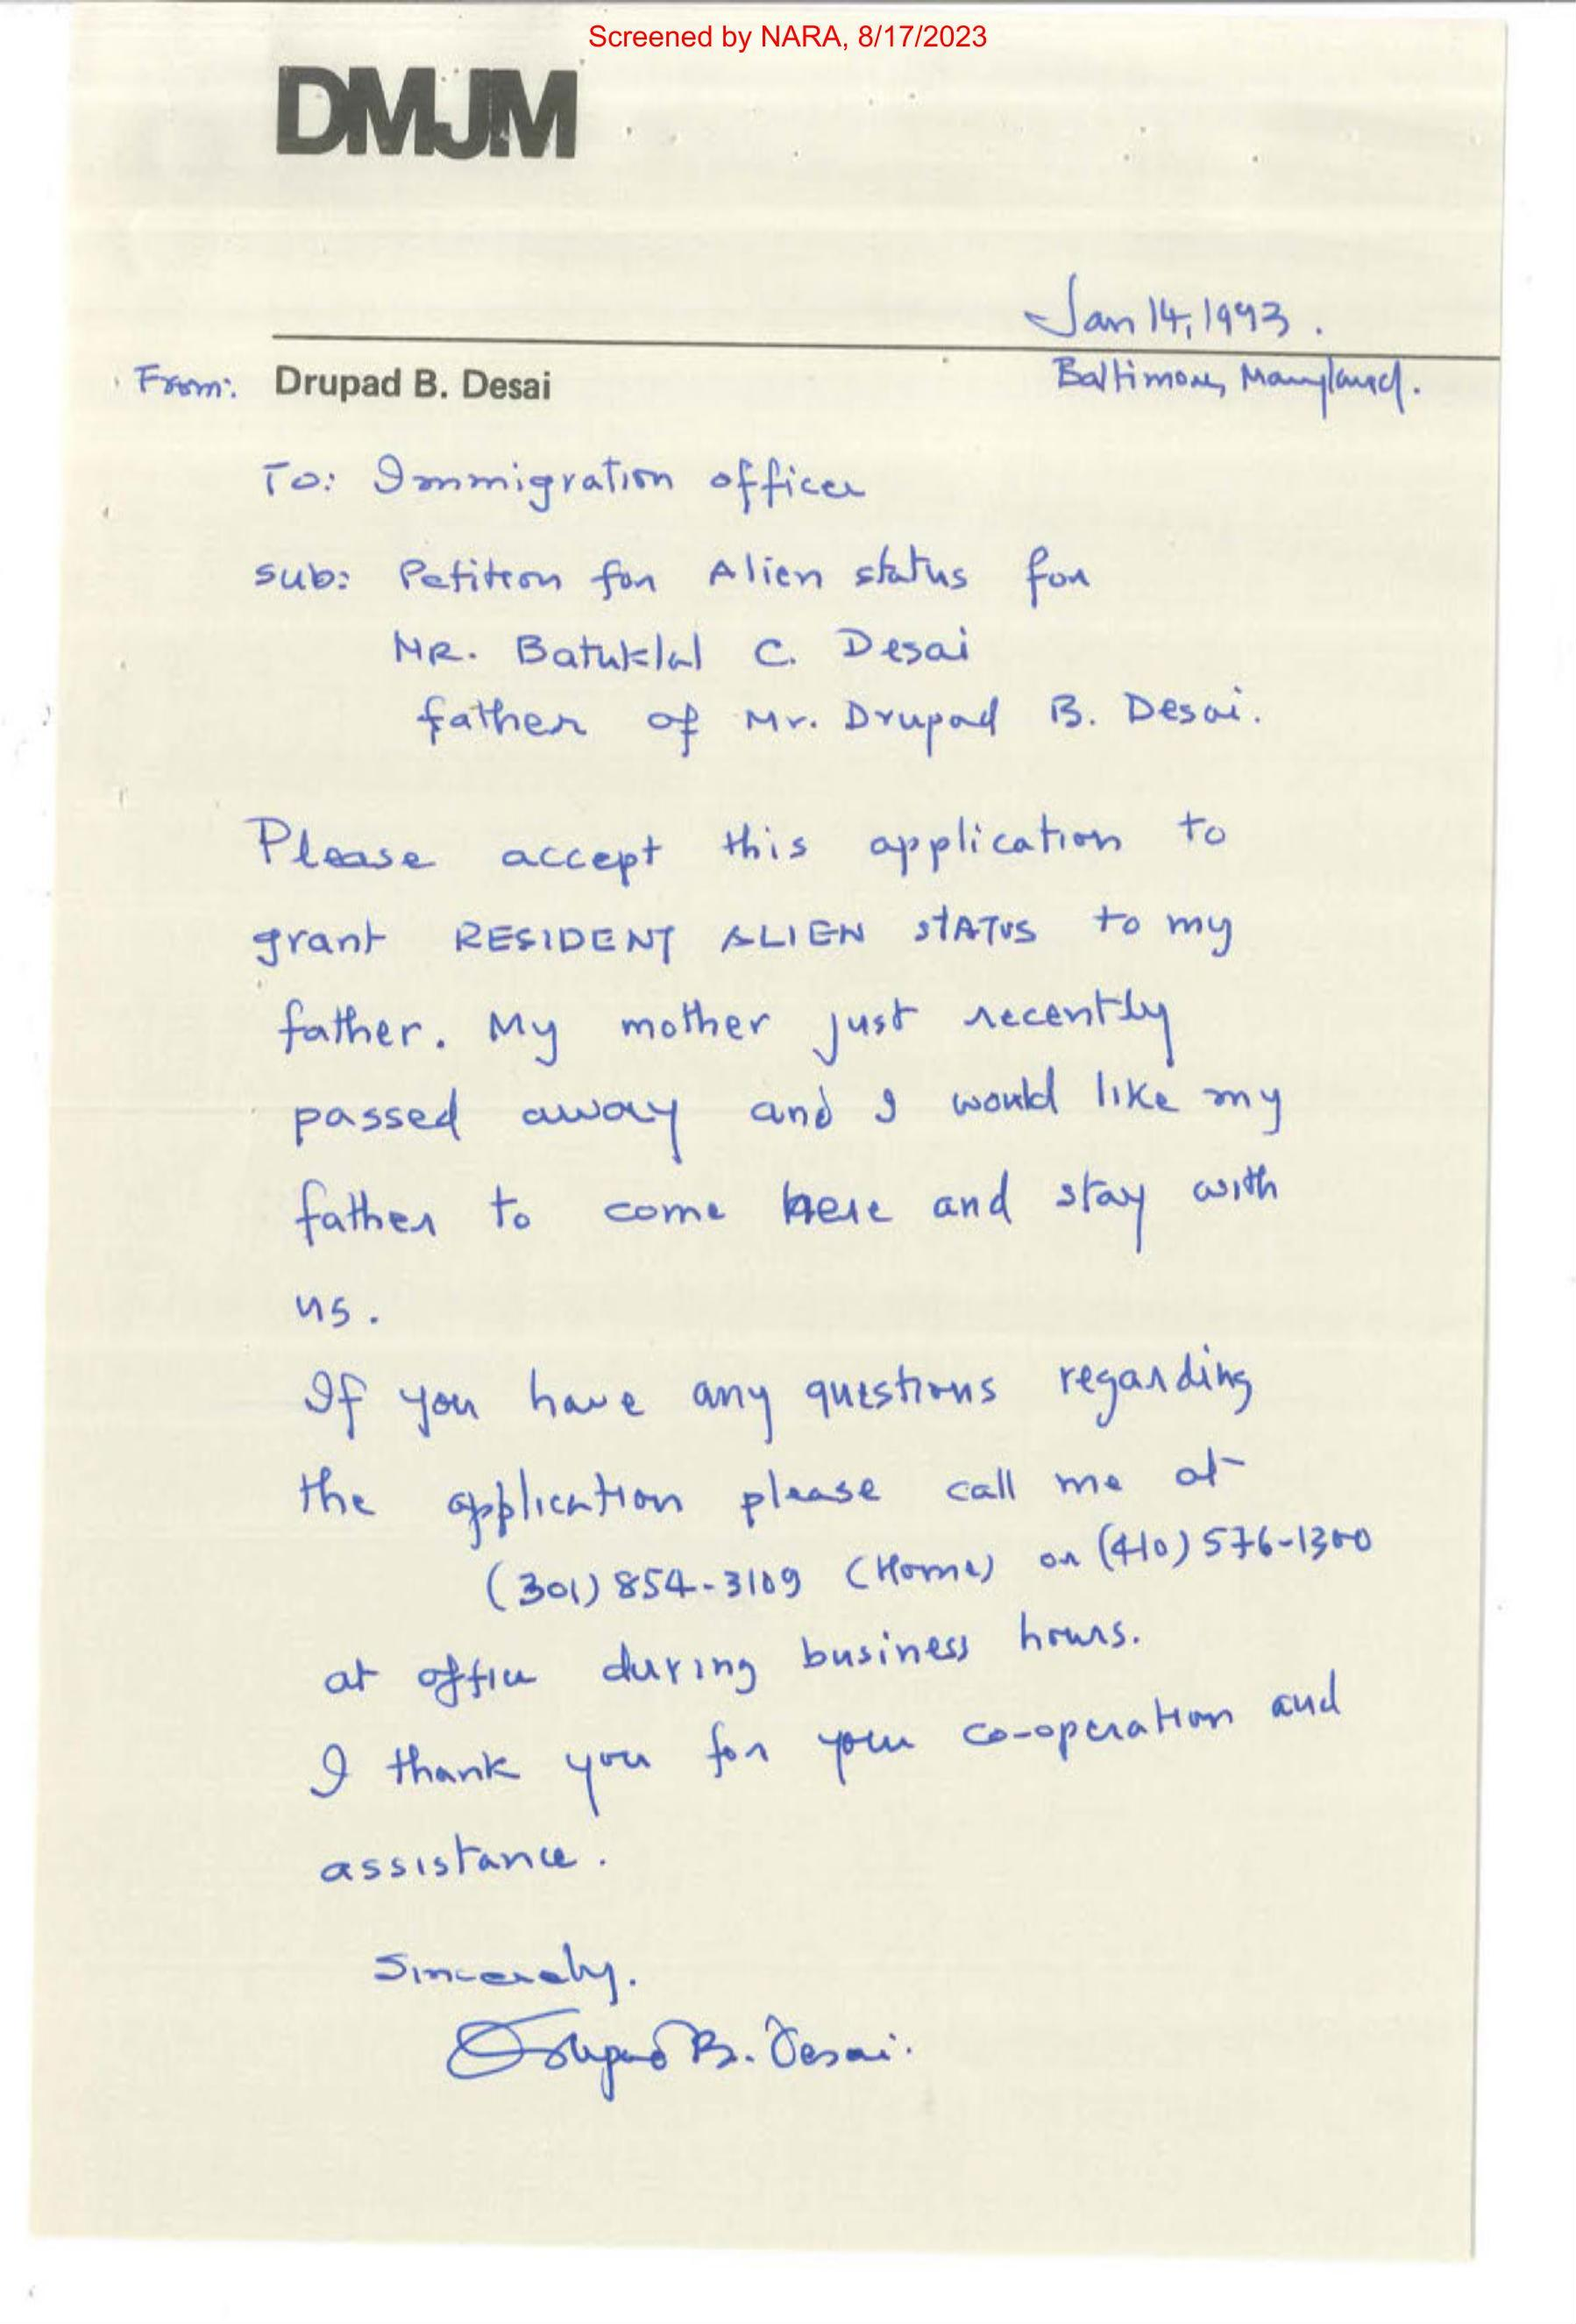 Screened by NARA, 8/17/2023
DMJM
Jan 14, 1993.
From: Drupad B. Desai
Baltimore, Maryland.
To: Immigration officer
Sub: Petition for Alien status for
MR. Batuklal C. Desai
father of Mr. Drupad B. Desai.
Please accept this application to
grant RESIDENT ALIEN STATUS to my
father. My mother just recently
passed away and I would like my
father to come here and stay with
us.
If you have any questions regarding
the application please call me at
(301) 854-3109 (Home) or (410) 576-1300
at office during business hours.
I thank you for your co-operation and
assistance.
Sincerely.
Drupad B. Desai.